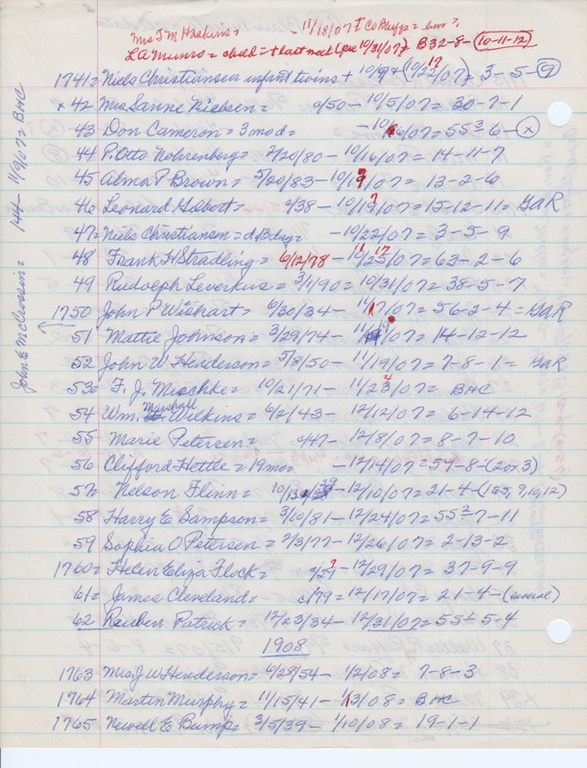 Mrs J M Haskins = - 11/18/07
L A Munro = child = + last week (pre 10/31/07) B32-8-(10-11-12)
1741 = Niels Christiansen infant twins + 10/9 + (10/22/07) 17 = 3-5-9
x 42 Mrs Sanne Nielsen = c/50 - 10/5/07 = 30-7-1
43 Don Cameron = 3 mo d = - 10/16/07 = 55 3/4 6-(x)
44 P. Otto Mohrenberg = 2/20/80 - 10/16/07 = 14-11-7
45 Alma P Brown = 5/20/83 - 10/19/07 = 13-2-6
46 Leonard Gilbert = c/38 - 10/19/07 = 15-12-11 = GAR
47 = Niels Christiansen = d Bday = - 10/22/07 = 3-5-9
48 Frank H Stradling = 6/12/78 - 11 17 10/25/07 = 63-2-6
49 Rudolph Leverkus = 3/1/90 = 10/31/07 = 38-5-7
1750 John P Wishart = 6/20/34 - 11/17/07 = 56-2-4 = GAR
51 Mattie Johnson = 3/29/74 - 11/19/07 = 14-12-12
52 John W Henderson = 5/3/50 - 11/19/07 = 7-8-1 = GAR
53 = F. J. Mischke = 10/21/71 - 11/23/07 = BHC
54 Wm. Marshall Wilkins = 6/2/43 - 12/12/07 = 6-14-12
55 Marie Petersen = c/47 - 12/8/07 = 8-7-10
56 Clifford Hettle = 19 mo = - 12/14/07 = 59-8-(2 or 3)
57 Nelson Flinn = 10/13/39 - 12/10/07 = 21-4-(1,5,7,9,10,12)
58 Harry E Sampson = 3/10/81 - 12/24/07 = 55 2-7-11
59 Sophia O Petersen = 2/3/77 - 12/26/07 = 2-13-2
1760 = Helen Eliza Flock = c/29 ? - 12/29/07 = 37-9-9
61 = James Cleveland = c/79 = 12/17/07 = 21-4-(several)
62 Reuben Patrick = 12/23/34 - 12/31/07 = 55-5-4
1908
1763 Mrs J W Henderson = 6/28/54 - 1/2/08 = 7-8-3
1764 Martin Murphy = 11/15/41 - 1/3/08 = BHC
1765 Newell E Bump = 3/5/39 - 1/10/08 = 19-1-1
John E McCuistin = 1/44 - 11/9/07 = BHC